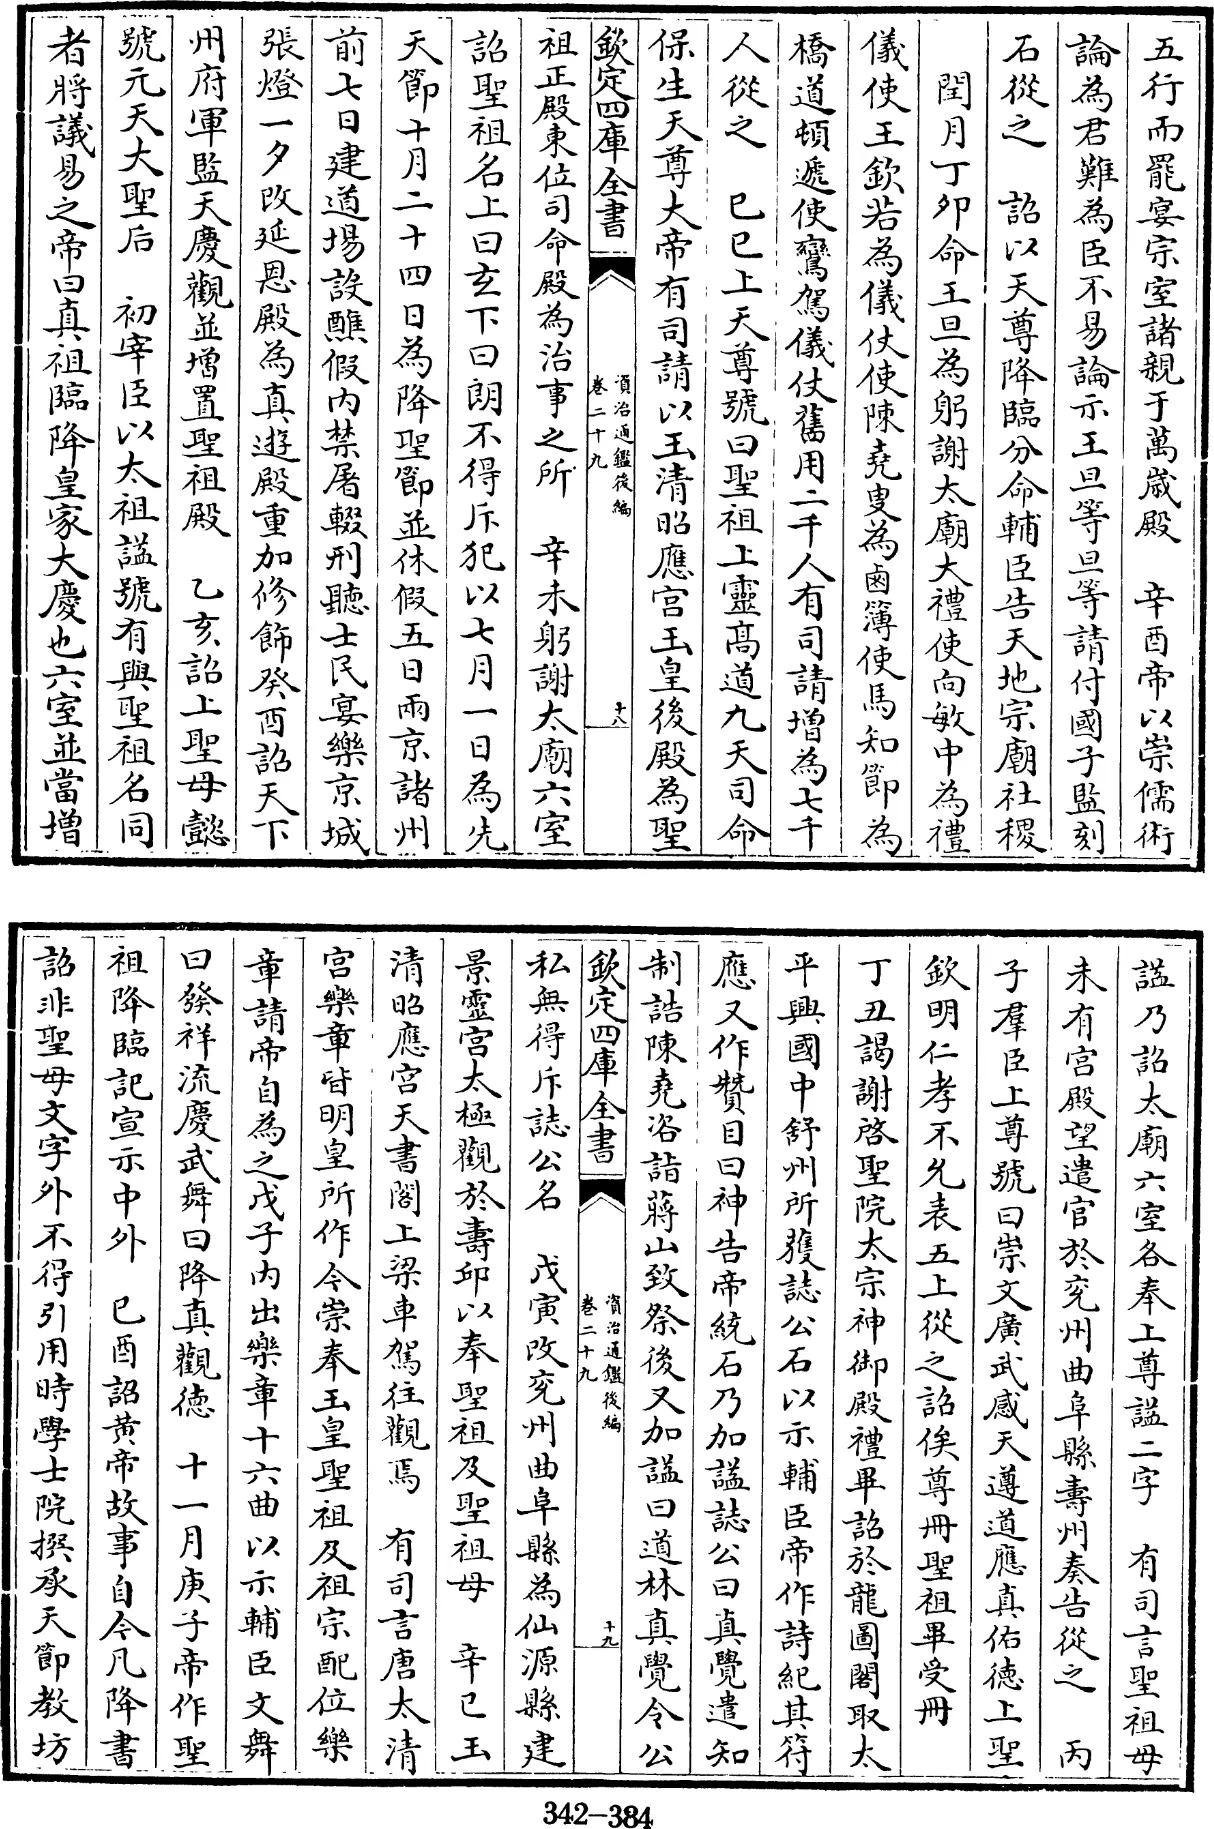 五行而罷宴宗室諸親于萬歲殿　辛酉帝以崇儒術
論為君難為臣不易論示王旦等旦等請付國子監刻
石從之　詔以天尊降臨分命輔臣告天地宗廟社稷
閏月丁卯命王旦為躬謝太廟大禮使向敏中為禮
儀使王欽若為儀仗使陳堯叟為鹵簿使馬知節為
橋道頓遞使鸞駕儀仗舊用二千人有司請增為七千
人從之　己巳上天尊號曰聖祖上靈髙道九天司命
保生天尊大帝有司請以玉清昭應宫玉皇後殿為聖
欽定四庫全書
資治通鑑後編
卷二十九
十八
祖正殿東位司命殿為治事之所　辛未躬謝太廟六室
詔聖祖名上曰玄下曰朗不得斥犯以七月一日為先
天節十月二十四日為降聖節並休假五日兩京諸州
前七日建道場設醮假内禁屠輟刑聽士民宴樂京城
張燈一夕改延恩殿為真遊殿重加修飾癸酉詔天下
州府軍監天慶觀並增置聖祖殿　乙亥詔上聖母懿
號元天大聖后　初宰臣以太祖諡號有與聖祖名同
者將議易之帝曰真祖臨降皇家大慶也六室並當增
諡乃詔太廟六室各奉上尊諡二字　有司言聖祖母
未有宫殿望遣官於兖州曲阜縣壽州奏告從之　丙
子羣臣上尊號曰崇文廣武感天遵道應真佑徳上聖
欽明仁孝不允表五上從之詔俟尊冊聖祖畢受冊
丁丑謁謝啓聖院太宗神御殿禮畢詔於龍圖閣取太
平興國中舒州所獲誌公石以示輔臣帝作詩紀其符
應又作贊目曰神告帝統石乃加諡誌公曰真覺遣知
制誥陳堯咨詣蔣山致祭後又加諡曰道林真覺令公
欽定四庫全書
資治通鑑後編
卷二十九
十九
私無得斥誌公名　戊寅改兖州曲阜縣為仙源縣建
景靈宫太極觀於壽邱以奉聖祖及聖祖母　辛巳玉
清昭應宫天書閣上梁車駕往觀焉　有司言唐太清
宫樂章皆明皇所作今崇奉玉皇聖祖及祖宗配位樂
章請帝自為之戊子内出樂章十六曲以示輔臣文舞
曰發祥流慶武舞曰降真觀徳　十一月庚子帝作聖
祖降臨記宣示中外　己酉詔黄帝故事自今凡降書
詔非聖母文字外不得引用時學士院撰承天節教坊
342-384